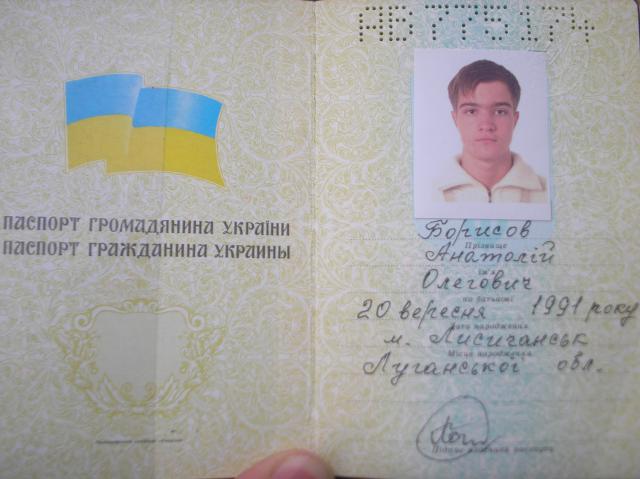 ПАСПОРТ ГРОМАДЯНИНА УКРАЇНИ
ПАСПОРТ ГРАЖДАНИНА УКРАИНЫ
Борисов
Прізвище
Анатолій
Ім'я
Олегович
по батькові
20 вересня 1991 року
Дата народження
м. Лисичанськ
Місце народження
Луганської обл.
Підпис власника паспорта